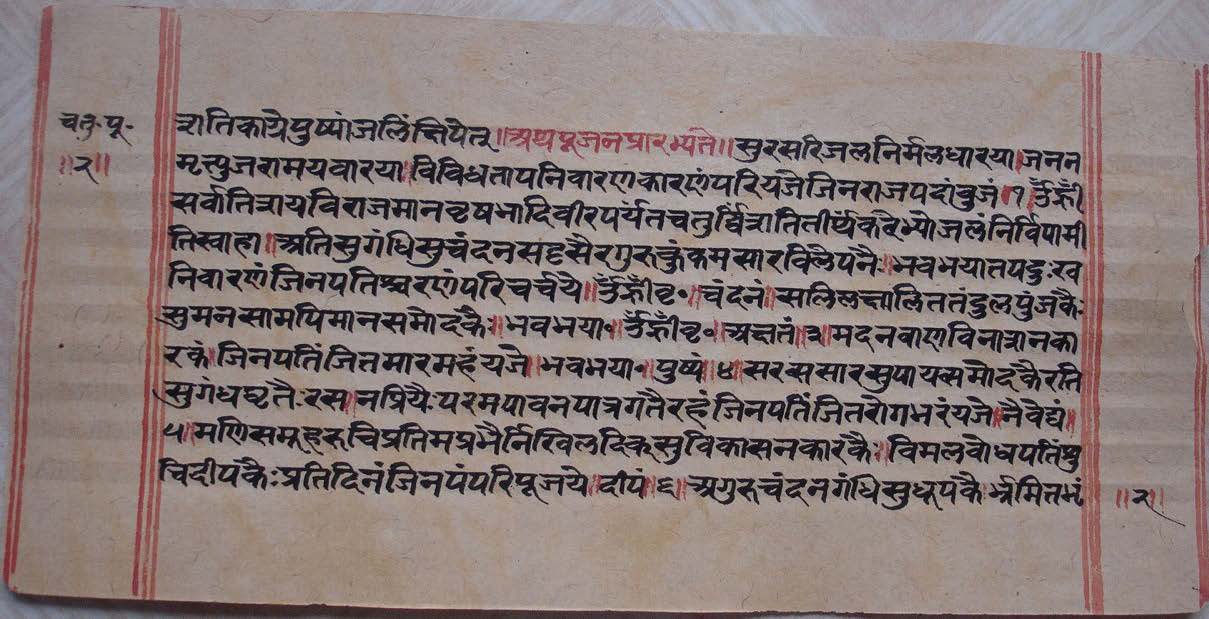 चतु. पू.
॥२॥
शतिकायेपुष्पांजलिंक्षिपेत्॥अथपूजनप्रारभ्यते॥सुरसरिज्जलनिर्मलधारया।जनन
मृत्युजरामयवारया।विविधतापनिवारणकारणंपरियजेजिनराजपदांबुजं।१।ॐह्रीं
सर्वातिशयविराजमानवृषभादिवीरपर्यंतचतुर्विंशतितीर्थकरेभ्योजलंनिर्विपामी
तिस्वाहा॥अतिसुगंधिसुचंदनसद्रसैरगुरुकुंकमसारविलेपनैः॥भवभयातपदुःख
निवारणंजिनपतिश्चरणंपरिचर्चये॥ॐह्रींवृ॰॥चंदनं॥सलिलक्षालिततंदुलपुंजकैः
सुमनसामपिमानसमोदकैः॥भवभया॰॥ॐह्रींवृ॰॥अक्षतं॥३॥मदनबाणविनाशनका
रकं।जिनपतिंजितमारमहंयजे॥भवभया॰॥पुष्पं॥४॥सरससारसुपायसमोदकैरति
सुगंधघृतैःरसनप्रियैःपरमपावनपात्रगतैरहंजिनपतिंजितरोगभरंयजे॥नैवेद्यं॥
५॥मणिसमूहरुचिप्रतिमप्रभैर्निखिलदिक्सुविकासनकारकैः॥विमलबोधपतिंशु
चिदीपकैःप्रतिदिनंजिनपंपरिपूजये॥दीपं॥६॥अगुरुचंदनगंधिसुधूपकैर्भ्रमितभृं
॥२॥